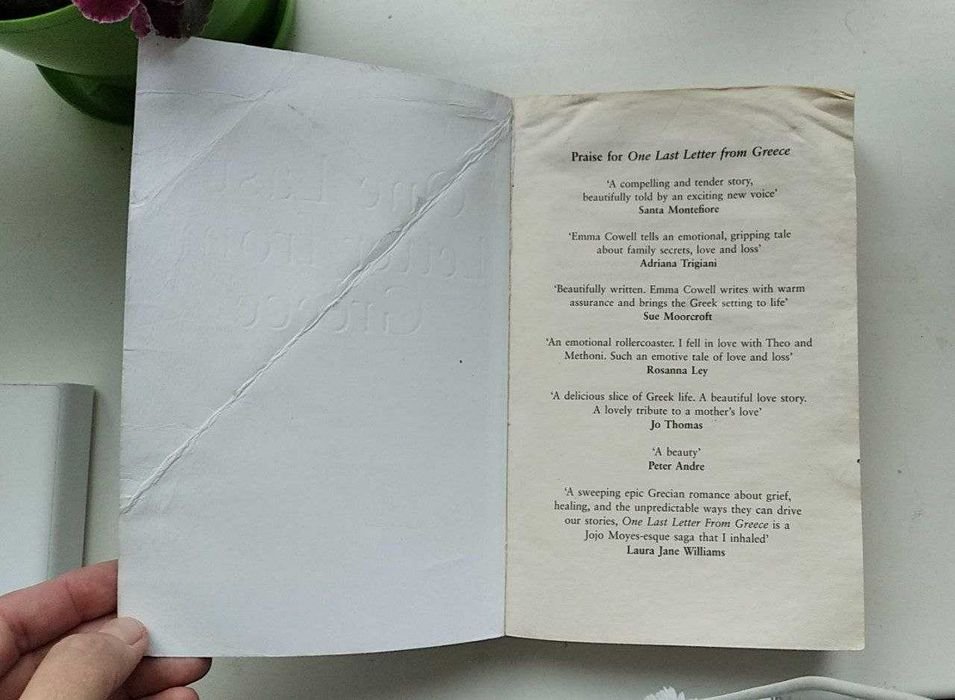 Praise for One Last Letter from Greece
‘A compelling and tender story,
beautifully told by an exciting new voice’
Santa Montefiore
‘Emma Cowell tells an emotional, gripping tale
about family secrets, love and loss’
Adriana Trigiani
‘Beautifully written. Emma Cowell writes with warm
assurance and brings the Greek setting to life’
Sue Moorcroft
‘An emotional rollercoaster. I fell in love with Theo and
Methoni. Such an emotive tale of love and loss’
Rosanna Ley
‘A delicious slice of Greek life. A beautiful love story.
A lovely tribute to a mother’s love’
Jo Thomas
‘A beauty’
Peter Andre
‘A sweeping epic Grecian romance about grief,
healing, and the unpredictable ways they can drive
our stories, One Last Letter From Greece is a
Jojo Moyes-esque saga that I inhaled’
Laura Jane Williams